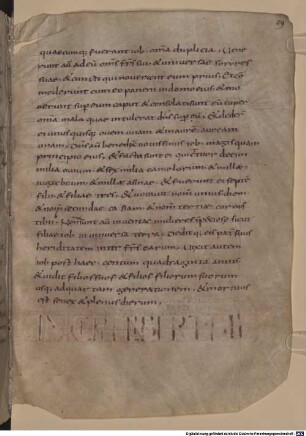 quaecumq; fuerant iob. omia duplicia. Uene
runt aut ad eū oms frs sui & universae sorores
suae. & cuncti qui noverant eum prius. & co
mederunt cum eo panem in domo eius. & mo
verunt sup eum caput & consolati sunt eū super
omia mala quae intulerat dns sup eū. & dede
r unusquisq; ovem unam & inaurē auream
unam. Dns aū benedix novissimis iob. magis quam
principio eius. & facta sunt ei quattuordecim
milia ovium & sex milia camelorum & mille
iuga boum & mille asinae. & fuerunt ei septē
filii & filiae tres. & vocavit nom unius diem
& nom secundae cassiam & nom tertiae cornu
tibii. Non sunt aū inventae mulieres speciosae sicut
filiae iob in universa terra. deditq; eis pat suus
hereditatem inter frs earum. Vixit autem
iob post haec. centum quadraginta annis
& vidit filios suos & filios filiorum suorum
usq; ad quartam generationem. & mortuus
est senex & plenus dierum.